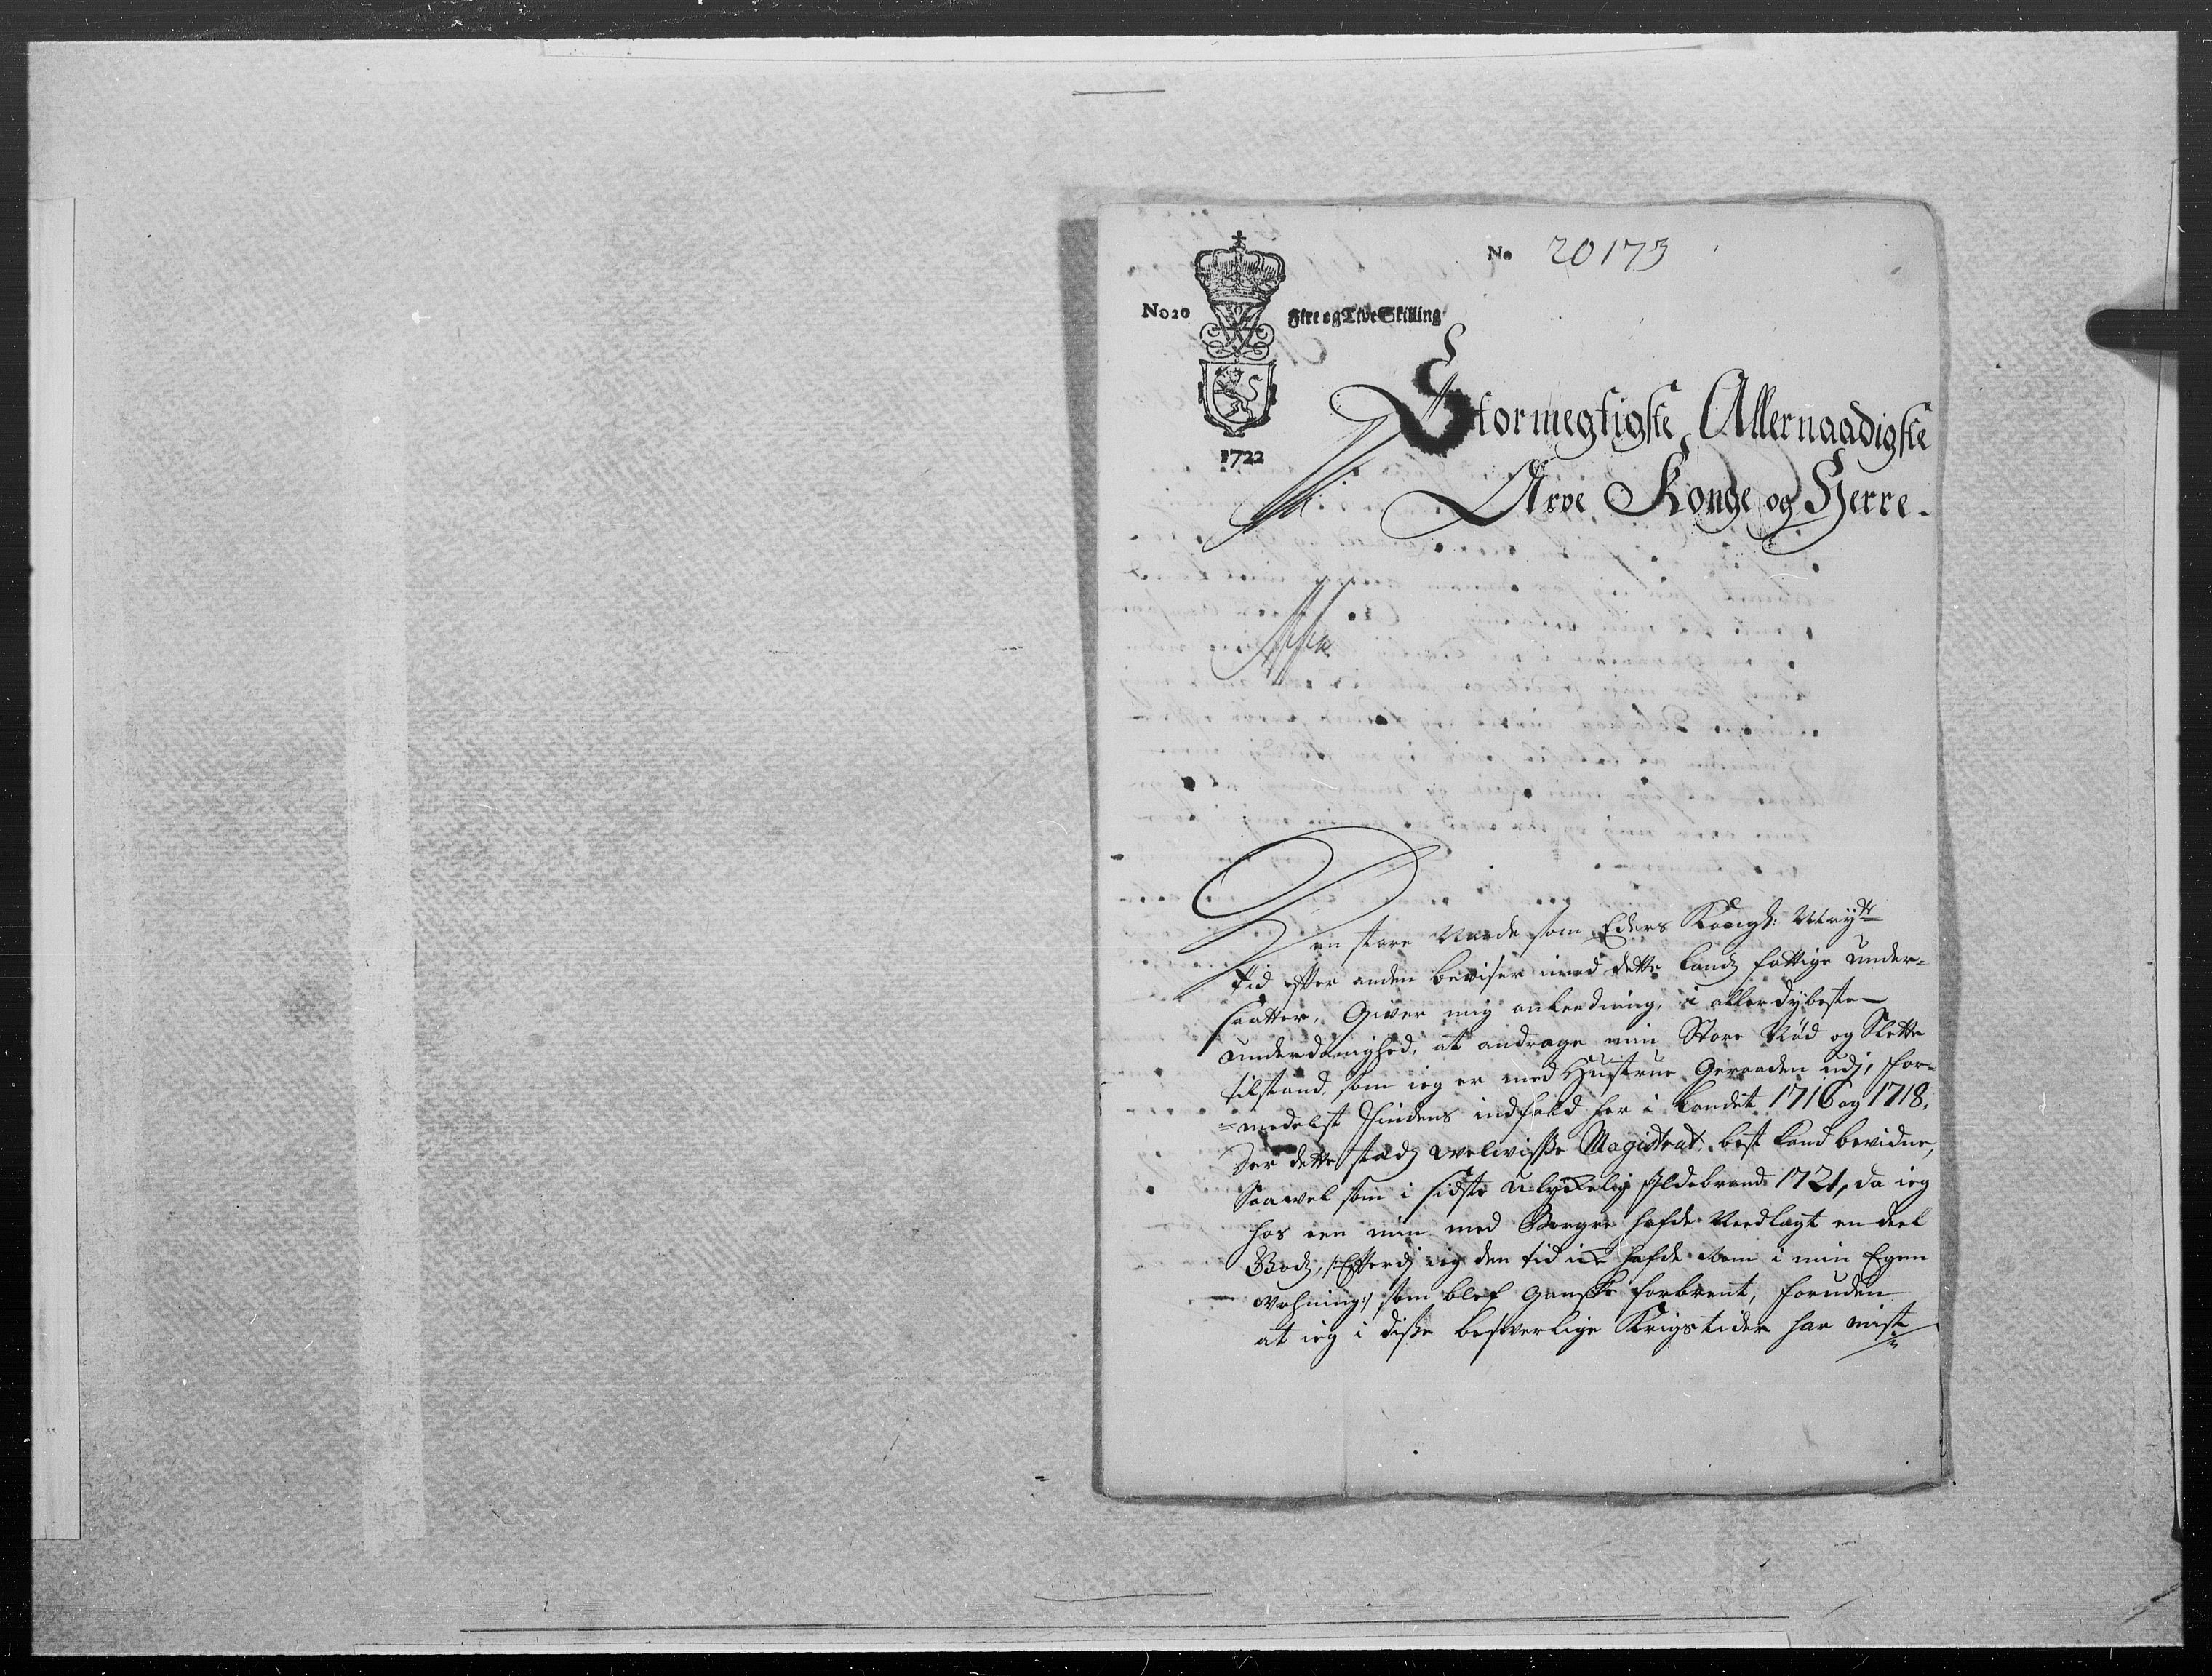 No 20173
No 20 Fire og Tive Skilling
1722
Stormegtigste, Allernaadigste
Arve Konge og Herre.
Den store Naade som Eders Kongl: Mayts
tid efter anden beviser imod dette Lands fattige under=
saatter, Giver mig anleedning, i allerdybeste
underdanighed, at andrage min Store Nød og Slette
tilstand, som ieg er med Hustrue Geraaden udj, for=
=medelst Findens indfald her i Landet 1716 og 1718.
Der dette stads velvisse Magistrat best kand bevidne,
Saavel som i sidste ulyckelig Ildebrand 1721, da ieg
hos een min med Borgere hafde Needlagt en deel
Gods, /:Efterdj ieg den tid icke hafde Rom i min Egen
Vaahning:/ som blef gandske forbrent, foruden
at ieg i disse besverlige Krigstider har mist